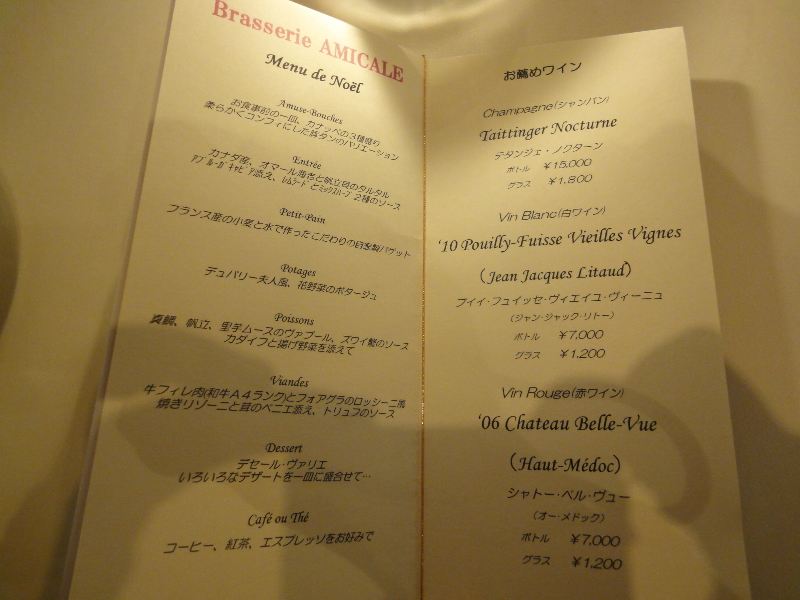 Brasserie AMICALE
Menu de Noël
Amuse-Bouches
お食事前の一皿、カナッペの3種盛り
柔らかくコンフィにした豚タンのバリエーション
Entrée
カナダ産、オマール海老と帆立貝のタルタル
ｱﾌﾞﾙｰｶﾞｷｬﾋﾞｱ添え、ﾚﾑﾗｰﾄﾞとﾐｯｸｽﾊｰﾌﾞ2種のソース
Petit-Pain
フランス産の小麦と水で作ったこだわりの自家製バゲット
Potages
デュバリー夫人風、花野菜のポタージュ
Poissons
真鯛、帆立、里芋ムースのヴァプール、ズワイ蟹のソース
カダイフと揚げ野菜を添えて
Viandes
牛フィレ肉(和牛A4ランク)とフォアグラのロッシーニ風
焼きリゾーニと茸のベニエ添え、トリュフのソース
Dessert
デセール・ヴァリエ
いろいろなデザートを一皿に盛合せて…
Café ou Thé
コーヒー、紅茶、エスプレッソをお好みで
お薦めワイン
Champagne(シャンパン)
Taittinger Nocturne
テタンジェ・ノクターン
ボトル ￥15,000
グラス ￥1,800
Vin Blanc(白ワイン)
'10 Pouilly-Fuisse Vieilles Vignes
(Jean Jacques Litaud)
プイィ・フュイッセ・ヴィエイユ・ヴィーニュ
(ジャン・ジャック・リトー)
ボトル ￥7,000
グラス ￥1,200
Vin Rouge(赤ワイン)
'06 Chateau Belle-Vue
(Haut-Médoc)
シャトー・ベル・ヴュー
(オー・メドック)
ボトル ￥7,000
グラス ￥1,200